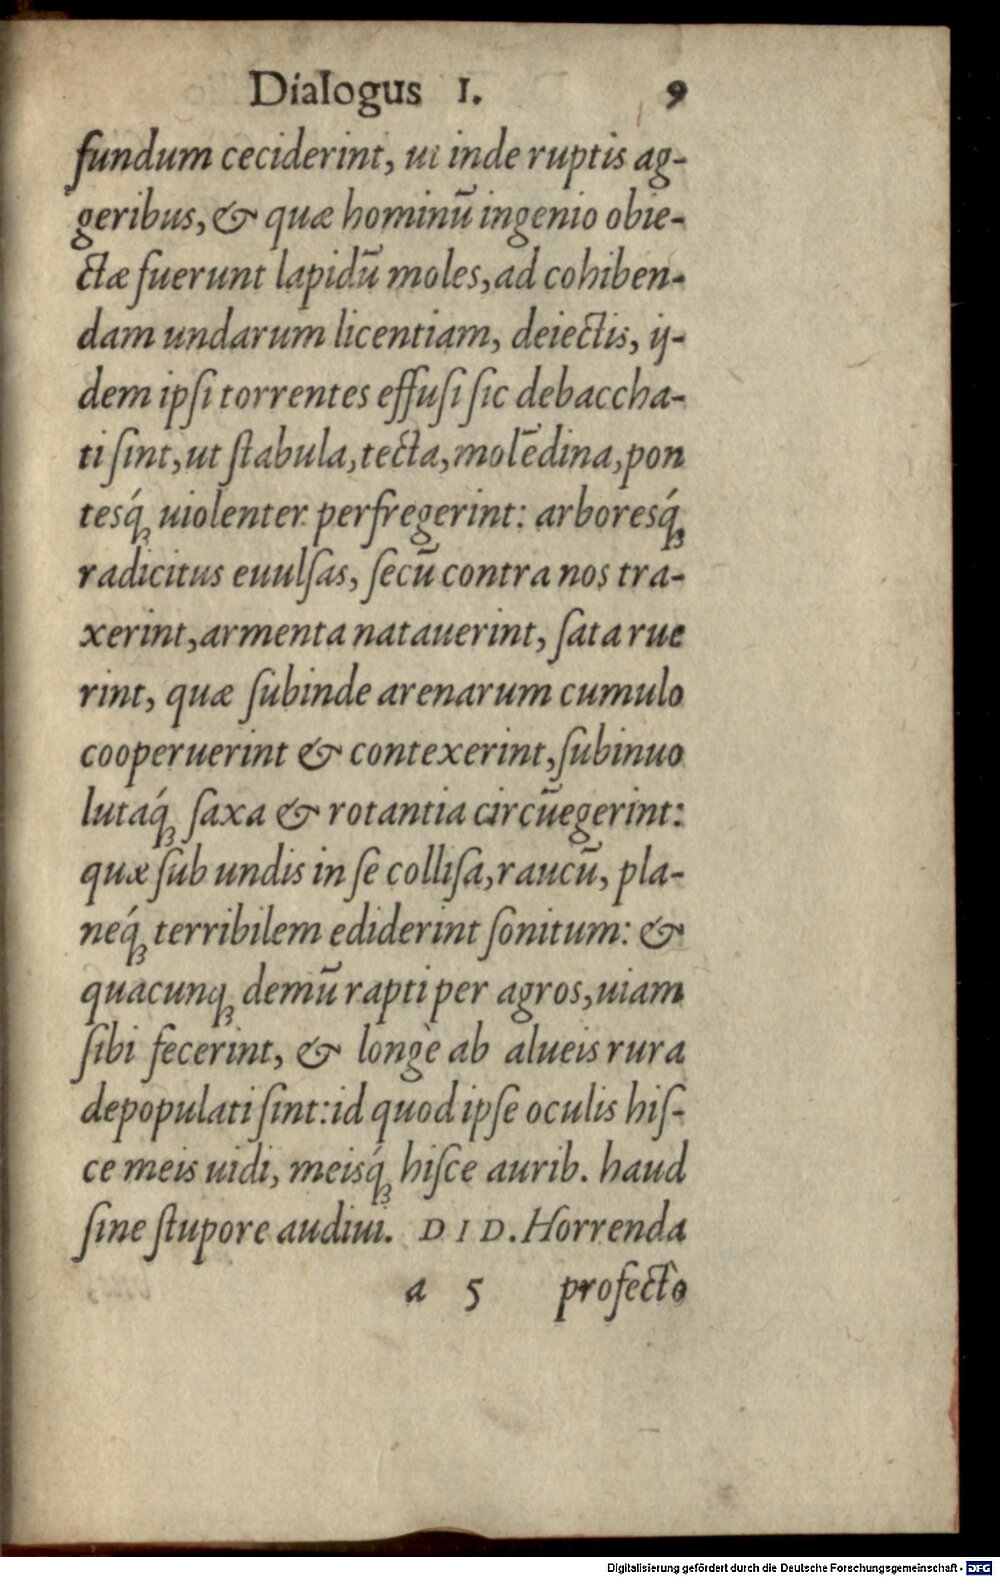 Dialogus I. 9
fundum ceciderint, ut inde ruptis ag-
geribus, & quæ hominū ingenio obie-
ctæ fuerunt lapidū moles, ad cohiben-
dam undarum licentiam, deiectis, ij-
dem ipſi torrentes effuſi ſic debaccha-
ti ſint, ut ſtabula, tecta, molēdina, pon
tesq́ꝫ uiolenter perfregerint: arboresq́ꝫ
radicitus euulſas, ſecū contra nos tra-
xerint, armenta natauerint, ſata rue
rint, quæ ſubinde arenarum cumulo
cooperuerint & contexerint, ſubinuo
lutaq́ꝫ ſaxa & rotantia circūegerint:
quæ ſub undis in ſe colliſa, raucū, pla-
neq́ꝫ terribilem ediderint ſonitum: &
quacunqꝫ demū rapti per agros, uiam
ſibi fecerint, & longè ab alueis rura
depopulati ſint: id quod ipſe oculis hiſ-
ce meis uidi, meisq́ꝫ hiſce aurib. haud
ſine ſtupore audiui. D I D. Horrenda
a 5 profectò
Digitalisierung gefördert durch die Deutsche Forschungsgemeinschaft - DFG